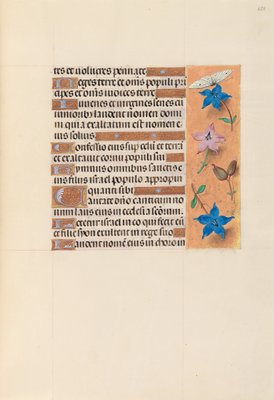 tes et volucres pennate
Reges terre et om̄s populi pri
cipes et om̄s iudices terre
Iuvenes et virgines senes cū
iunioribus laudent nomen domi
ni quia exaltatum est nomen e
ius solius
Confessio eius sup celū et terrā
et exaltavit cornu populi sui
Ymnus omnibus sanctis e
ius filiis israel populo appropin
quanti sibi
Cantate dño canticum no
vum laus eius in ecclesia scōrum
Letetur israel in eo qui fecit eū
et filie syon exultent in rege suo
Laudent nomē eius in choro in